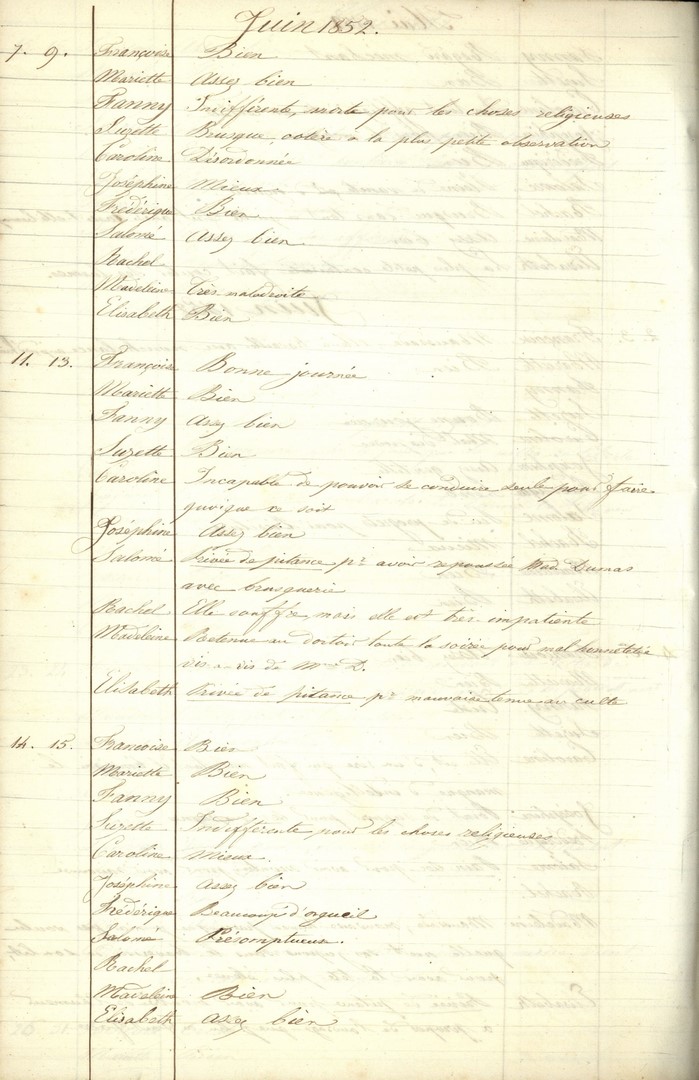 Juin 1852.
7. 9. Françoise Bien
Mariette Assez bien
Fanny Indifférente, morte pour les choses religieuses
Suzette Brusque, colère à la plus petite observation
Caroline Désordonnée
Joséphine Mieux
Frédérique Bien
Salomé Assez bien
Rachel
Madeleine très maladroite
Elisabeth Bien
11. 13. Françoise Bonne journée
Mariette Bien
Fanny Assez bien
Suzette Bien
Caroline Incapable de pouvoir se conduire seule pour faire
quoique ce soit
Joséphine Assez bien
Salomé Privée de pitance pr avoir repoussée Mad. Dumas
avec brusquerie
Rachel Elle souffre, mais elle est très impatiente
Madeleine Retenue au dortoir toute la soirée pour mal honnêteté
vis-à-vis de Mme D.
Elisabeth Privée de pitance pr mauvaise tenue au culte
14. 15. Françoise Bien
Mariette Bien
Fanny Bien
Suzette Indifférente pour les choses religieuses
Caroline Mieux.
Joséphine Assez bien
Frédérique Beaucoup d'orgueil
Salomé Présomptueux.
Rachel
Madeleine Bien
Elisabeth Assez bien